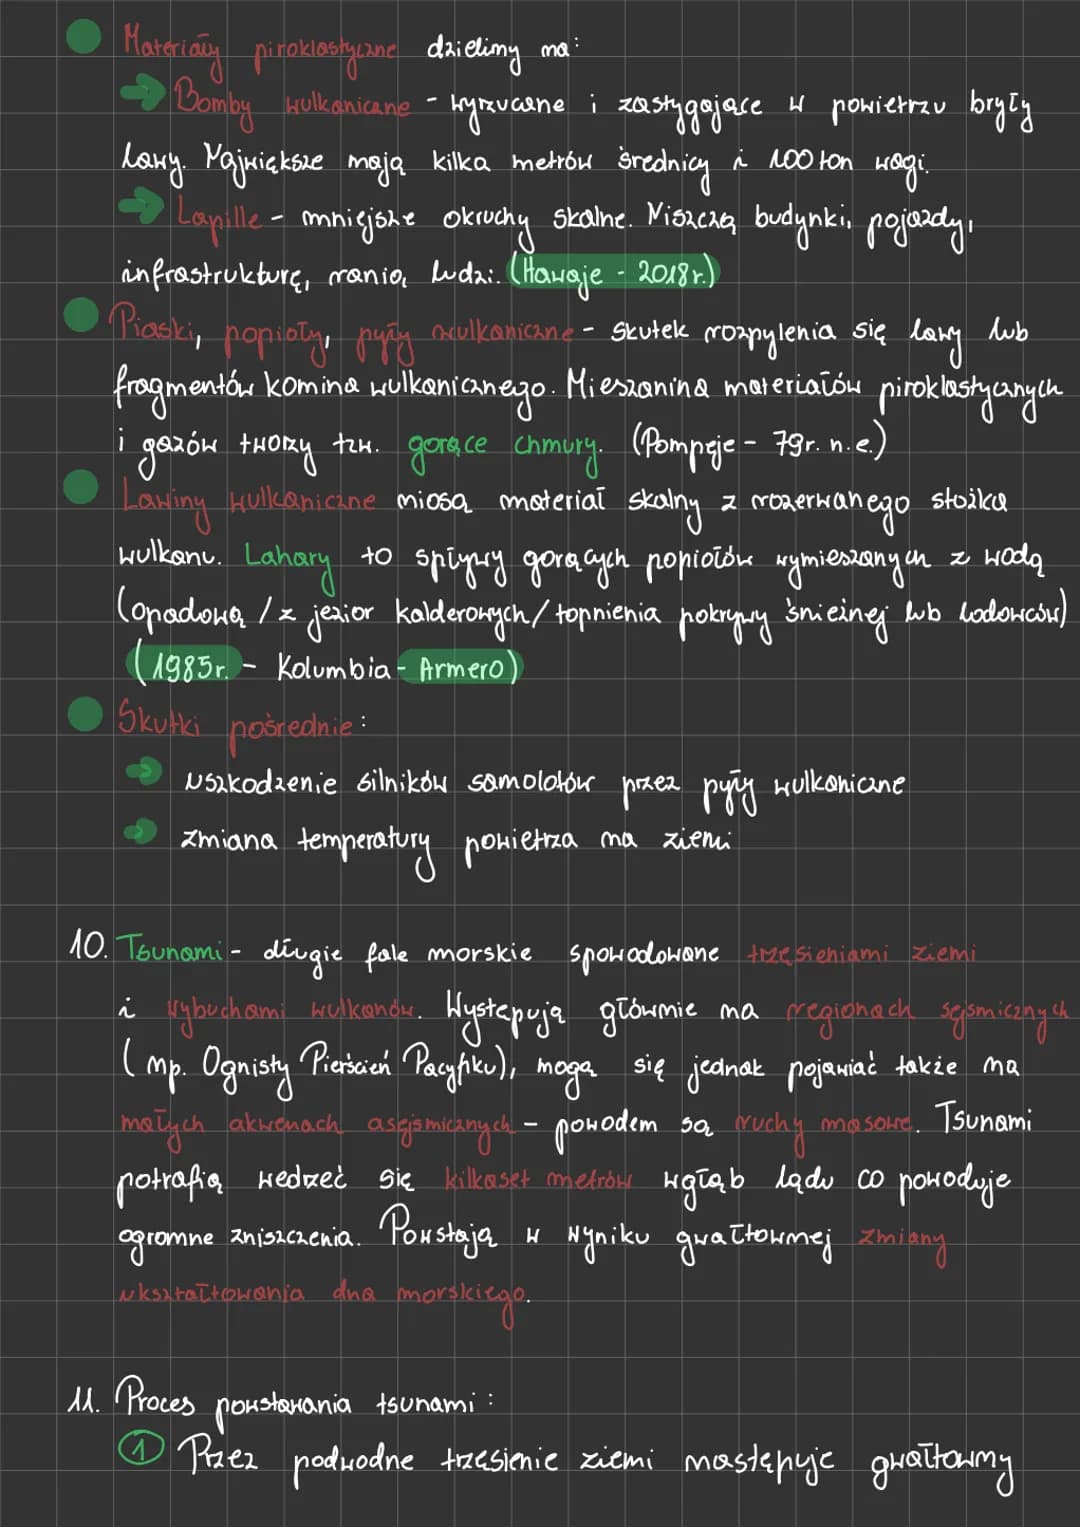 Materiały piroklastyczne dzielimy na:
Bomby wulkaniczne - wyrzucane i zastygające w powietrzu bryły
lawy. Największe mają kilka metrów średnicy i 100 ton wagi.
Lapille - mniejsze okruchy skalne. Niszczą budynki, pojazdy,
infrastrukturę, ranią ludzi. (Hawaje - 2018r.)
Piaski, popioły, pyły wulkaniczne - skutek rozpylenia się lawy lub
fragmentów komina wulkanicznego. Mieszanina materiałów piroklastycznych
i gazów tworzy tzw. gorące chmury. (Pompeje - 79r. n.e.)
Lawiny wulkaniczne niosą materiał skalny z rozerwanego stożka
wulkanu. Lahary to spływy gorących popiołów wymieszanych z wodą
(opadową / z jezior kalderowych / topnienia pokrywy śnieżnej lub lodowców)
(1985r. - Kolumbia - Armero)
Skutki pośrednie:
uszkodzenie silników samolotów przez pyły wulkaniczne
zmiana temperatury powietrza na ziemi
10. Tsunami - długie fale morskie spowodowane trzęsieniami ziemi
i wybuchami wulkanów. Występują głównie na regionach sejsmicznych
(np. Ognisty Pierścień Pacyfiku), mogą się jednak pojawiać także na
małych akwenach asejsmicznych - powodem są ruchy masowe. Tsunami
potrafią wedrzeć się kilkaset metrów wgłąb lądu co powoduje
ogromne zniszczenia. Powstają w wyniku gwałtownej zmiany
ukształtowania dna morskiego.
11. Proces powstawania tsunami:
1 Przez podwodne trzęsienie ziemi następuje gwałtowny